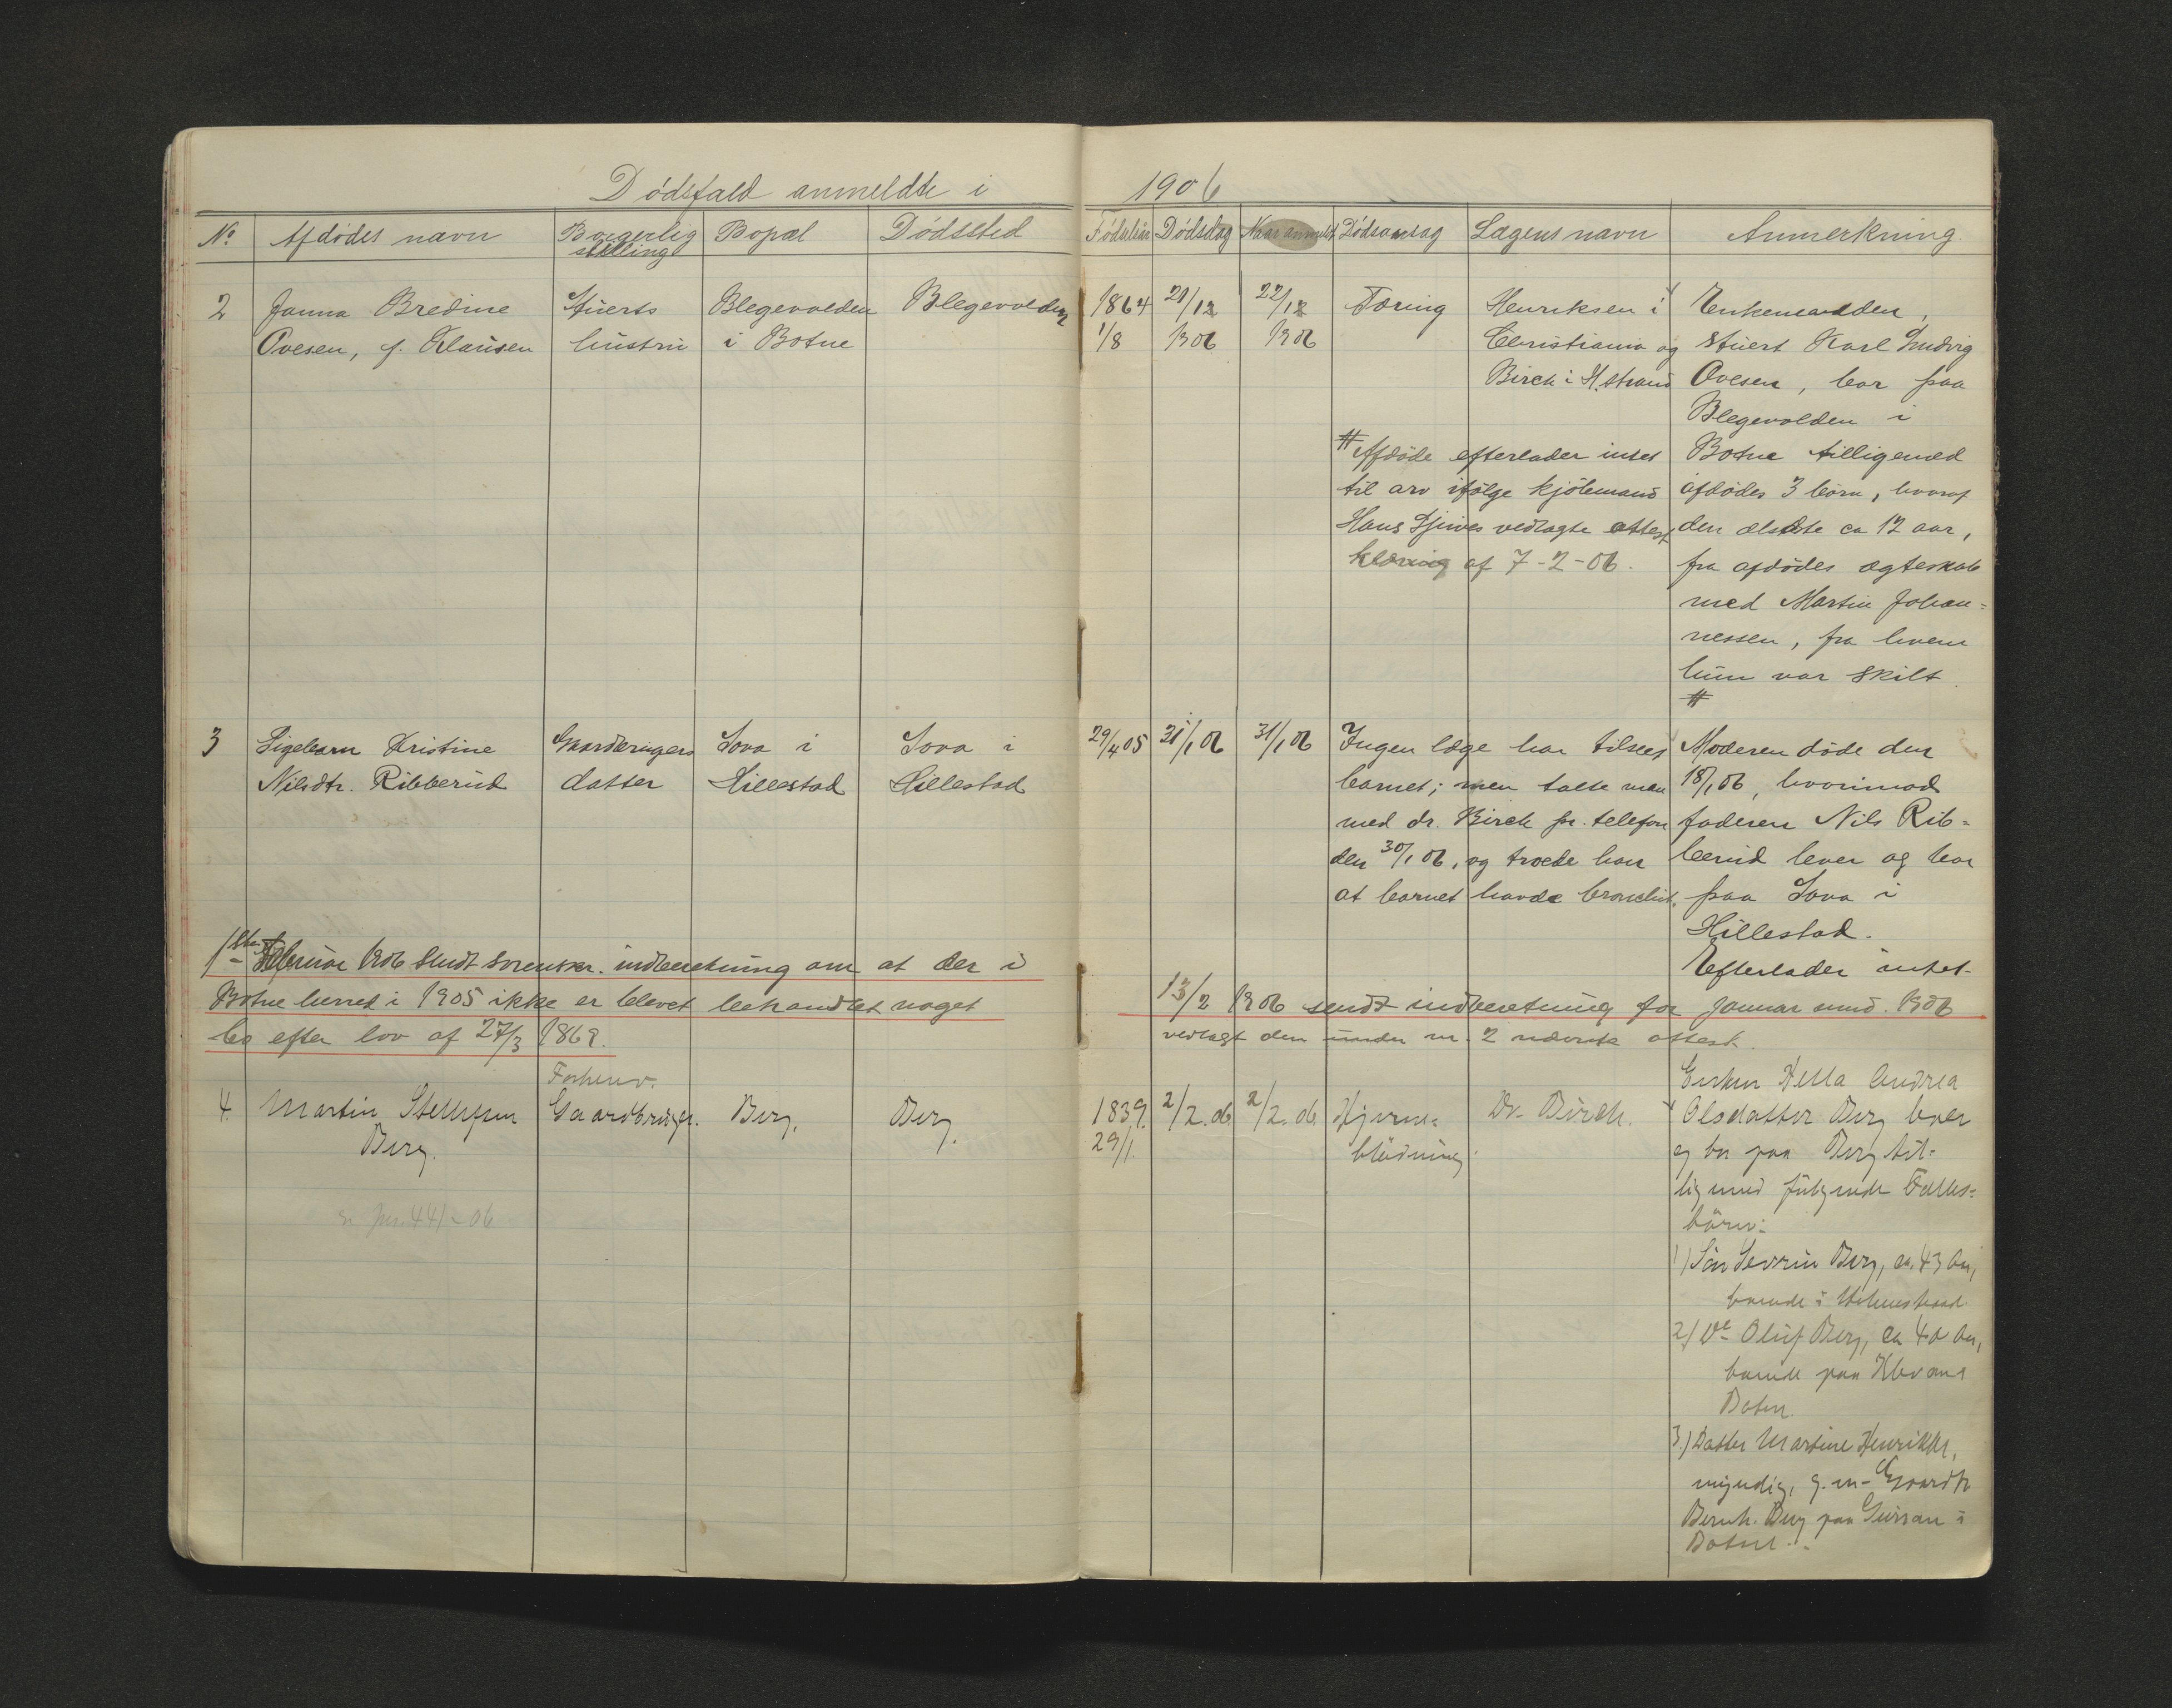 Dødsfald anmeldte i 1906
No Afdødes navn Borgerlig stilling Bopæl Dødssted Fødselsår Dødsdag Naar anmeldt Dødsaarsag Lægens navn Anmerkning
2 Janna Bredine Stuerts Blegevolden Blegevolden 1864 21/12 22/12 Tæring Henriksen i Enkemanden,
Ovesen, f. Klausen hustru i Botne 1/8 1906 1906 Christiania og stuert Karl Ludvig
Birch i H.strand Ovesen, bor paa
Blegevolden i
# Afdøde efterlader intet Botne tilligemed
til arv ifølge kjøbmand afdødes 3 børn, hvoraf
Hans vedlagte attest den ældste ca 12 aar,
af 7-2-06. fra afdødes ægteskab
med Martin Johan-
nessen, fra hvem
hun var skilt.
#
3 Pigebarn Kristine Gaardbrugers Sova i Sova i 29/4 05 31/1 06 31/1 06 Ingen læge har tilseet Moderen døde den
Nilsdtr. Ribberud datter Hillestad Hillestad barnet; men talte man 18/1 06, hvorimod
med dr. Birch pr. telefon faderen Nils Rib-
den 30/1 06, og troede han berud lever og bor
at barnet havde bronchit. paa Sova i
Hillestad.
Efterlader intet.
1ste Februar 1906 sendt sorenskr. indberetning om at der i
Botne herred i 1905 ikke er blevet behandlet noget
bo efter lov af 27/3 1869.
13/2 1906 sendt indberetning for januar mnd. 1906
vedlagt den under nr. 2 nævnte attest.
4. Martin Steffensen Forhenv. Gaardbruger. Berg. Berg. 1839. 2/2.06 2/2.06 Hjerne- Dr. Birch. Enken Andrea
Berg. 29/1. blødning. Olsdatter Berg lever
og bor paa Berg til-
ligemed følgende Fælles-
børn:
1) Søn Severin Berg, ca. 43 Aar,
boende i Holmestrand.
2) Do Oluf Berg, ca 40 Aar,
boende paa
Botne.
3.) Datter Martine
myndig, g. m. Gaardbr.
Bernh. Berg paa i
Botne.